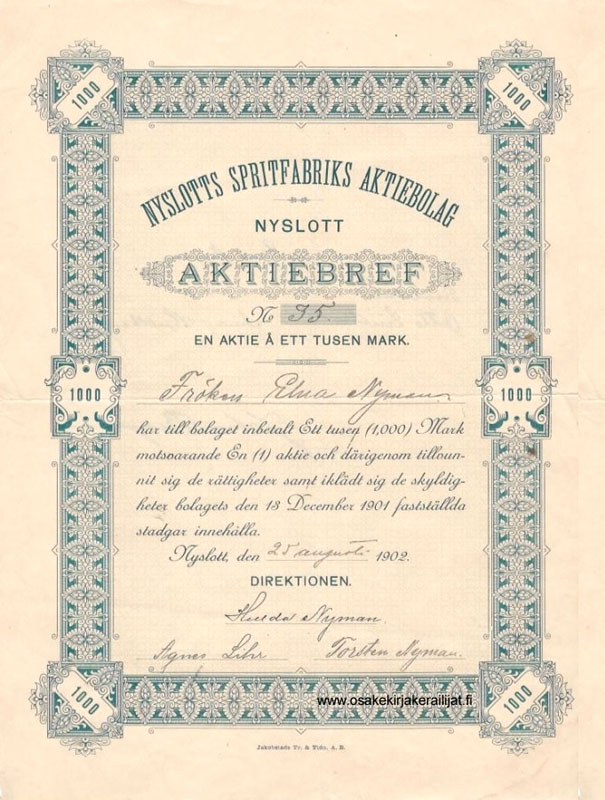 1000
1000
NYSLOTTS SPRITFABRIKS AKTIEBOLAG
NYSLOTT
AKTIEBREF
№ 35
EN AKTIE Å ETT TUSEN MARK.
1000
1000
Fröken Elna Nyman
har till bolaget inbetalt Ett tusen (1,000) Mark
motsvarande En (1) aktie och därigenom tillvun-
nit sig de rättigheter samt iklädt sig de skyldig-
heter bolagets den 13 December 1901 fastställda
stadgar innehålla.
Nyslott, den 25 augusti 1902.
DIREKTIONEN.
Hulda Nyman.
Agnes Torsten Nyman.
1000
1000
www.osakekirjakerailijat.fi
Jakobstads Tr. & Tidn. A. B.